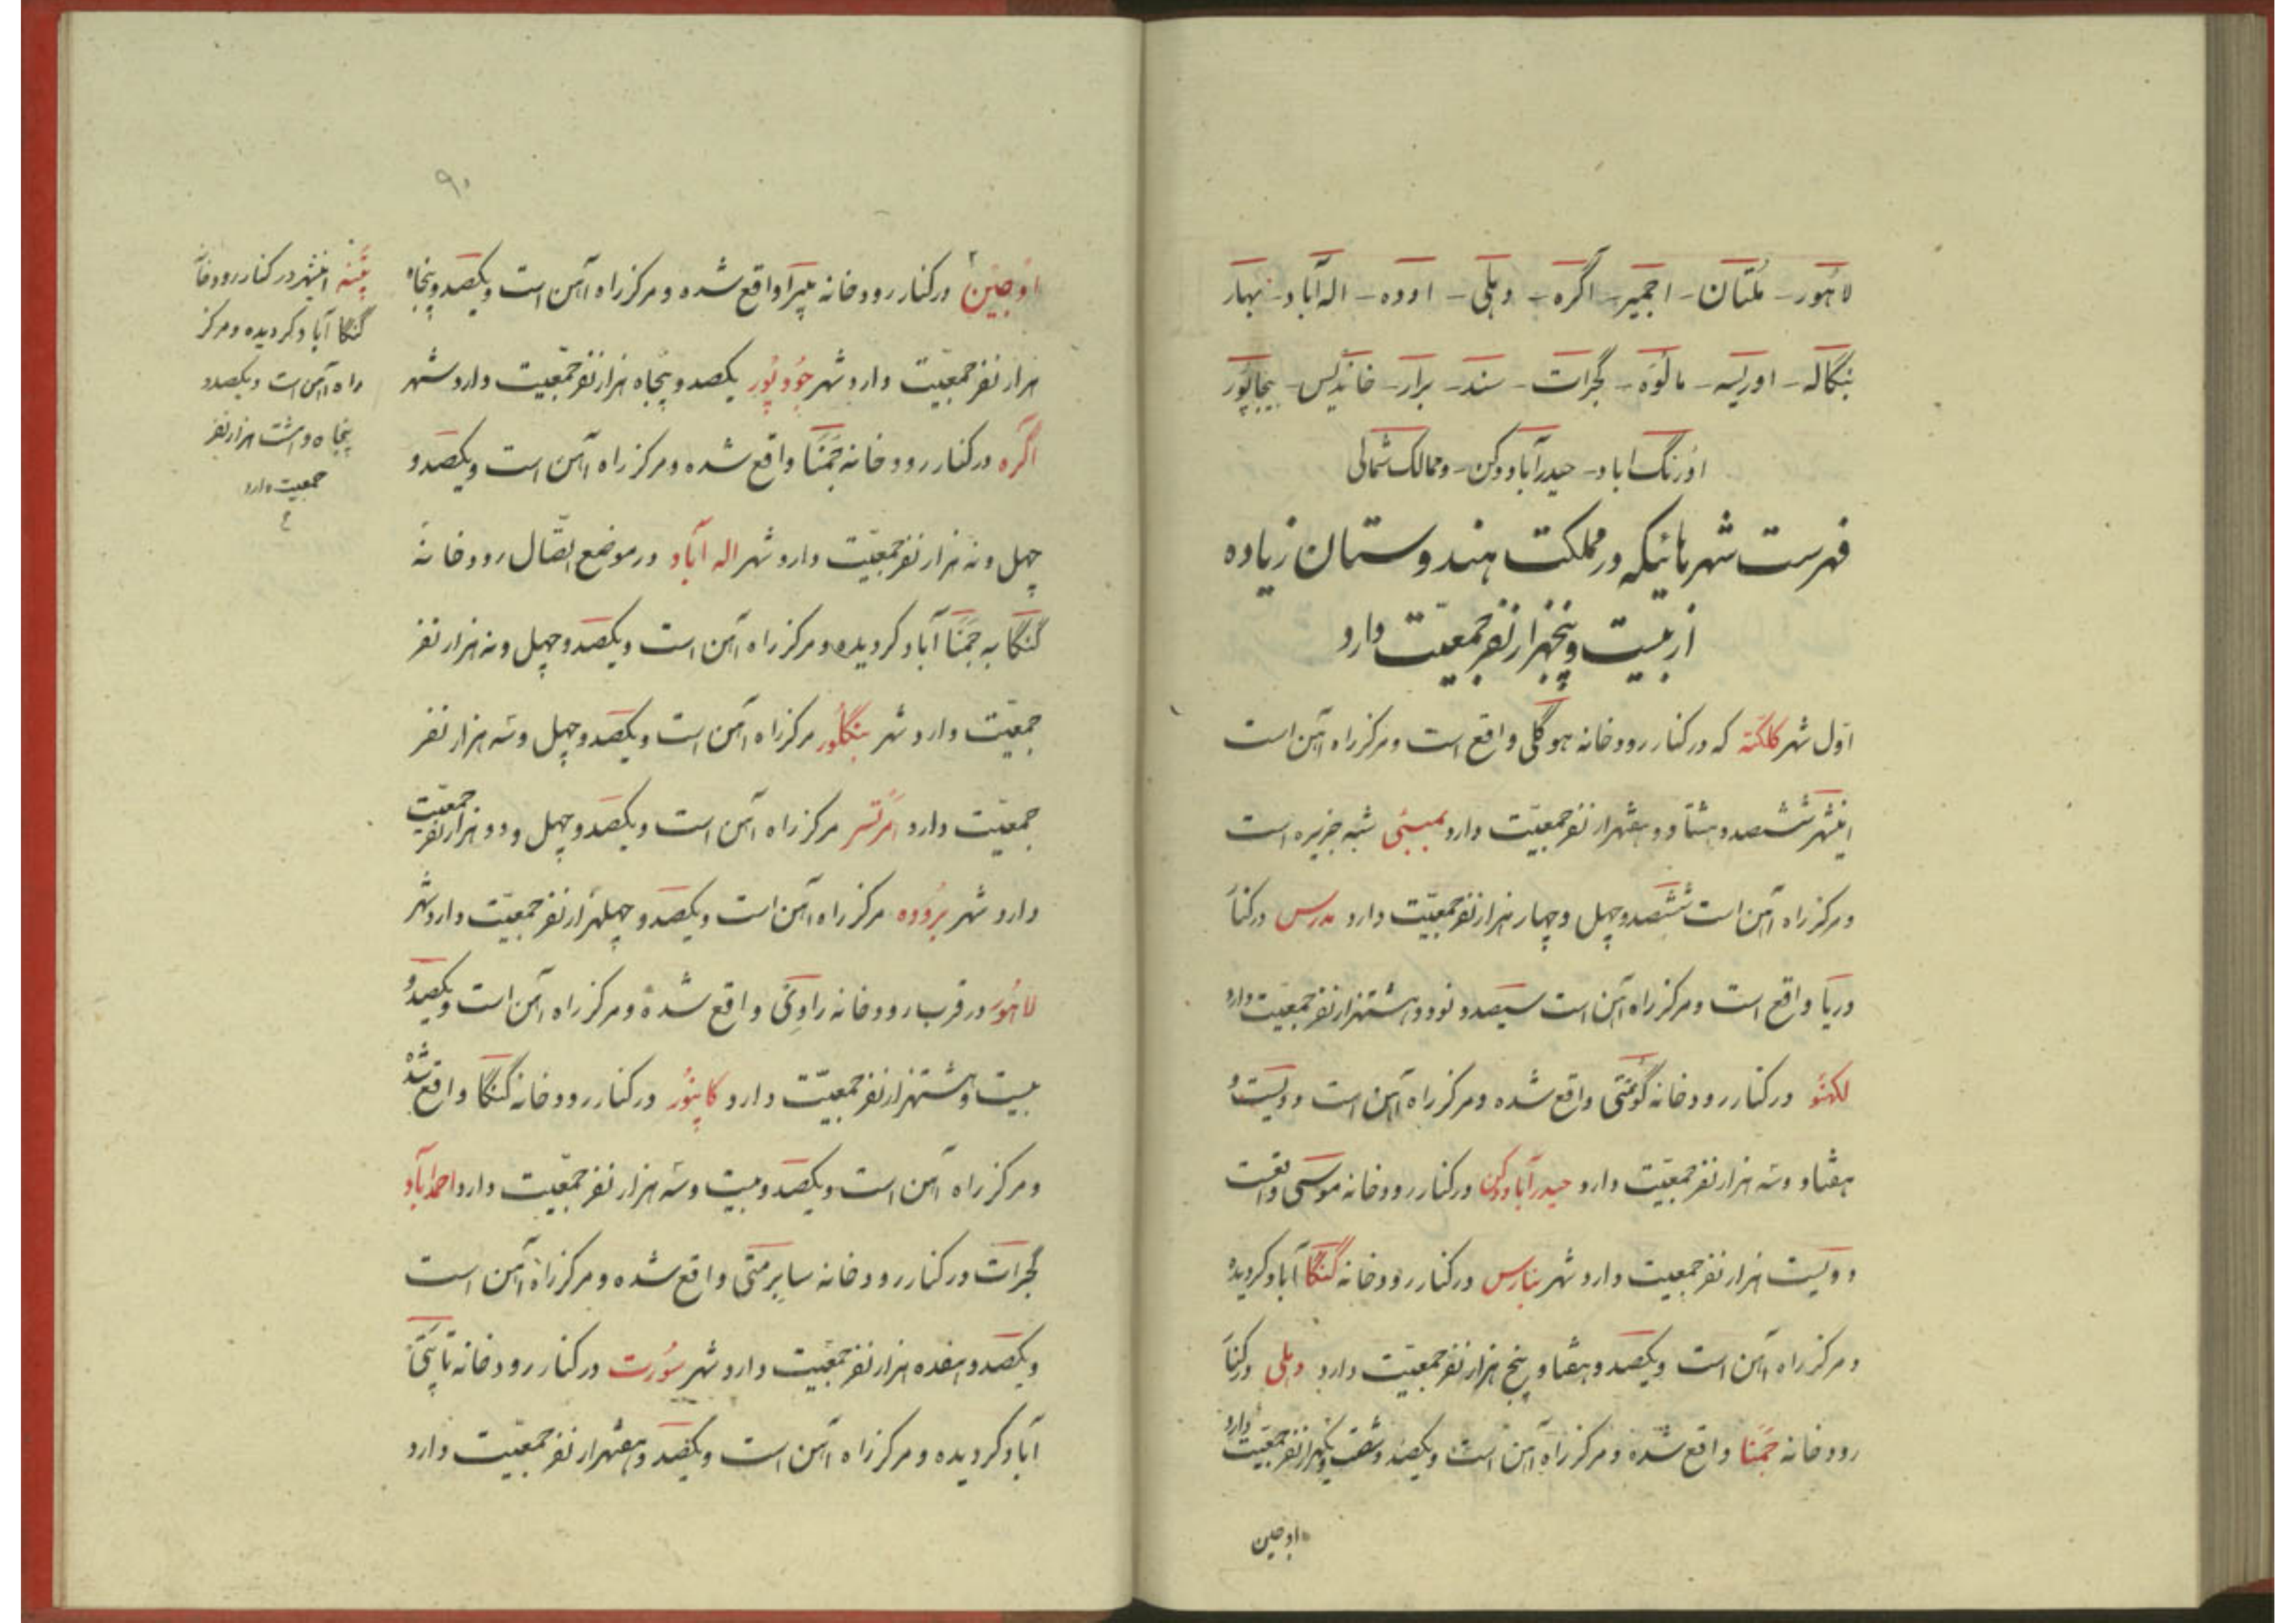 لاهور - ملتان - اجمیر - آگره - دهلی - اوده - اله آباد - بهار
بنگاله - اوریسه - مالوه - گجرات - سند - برار - خاندیس - بیجاپور
اورنگ آباد - حیدرآباد دکن - و ممالک شمالی
فهرست شهرهائیکه در مملکت هندوستان زیاده
از بیست و پنجهزار نفر جمعیّت دارد
اوّل شهر کلکته که در کنار رودخانه هوگلی واقع است و مرکز راه آهن است
اینشهر ششصد و هشتاد و هفتهزار نفر جمعیّت دارد بمبئی شبه جزیره است
و مرکز راه آهن است ششصد و چهل و چهار هزار نفر جمعیّت دارد مدرس در کنار
دریا واقع است و مرکز راه آهن است سیصد و نود و هشتهزار نفر جمعیّت دارد
لکهنو در کنار رودخانه گومتی واقع شده و مرکز راه آهن است و دویست و
هفتاد و سه هزار نفر جمعیّت دارد حیدرآباد دکن در کنار رودخانه موسی واقعست
دویست هزار نفر جمعیت دارد شهر بنارس در کنار رودخانه گنگا آباد گردیده
و مرکز راه آهن است و یکصد و هفتاد و پنج هزار نفر جمعیّت دارد دهلی در کنار
رودخانه جمنا واقع شده و مرکز راه آهن است و یکصد و شصت و یکهزار نفر جمعیّت دارد
اوجین
۹۰
اوجین در کنار رودخانه واقع شده و مرکز راه آهن است و یکصد و پنجاه
هزار نفر جمعیّت دارد شهر جودپور یکصد و پنجاه هزار نفر جمعیّت دارد شهر
آگره در کنار رودخانه جمنا واقع شده و مرکز راه آهن است و یکصد و
چهل و نه هزار نفر جمعیّت دارد شهر اله آباد در موضع اتّصال رودخانه
گنگا به جمنا آباد گردیده و مرکز راه آهن است و یکصد و چهل و نه هزار نفر
جمعیّت دارد شهر بنگلور مرکز راه آهن است و یکصد و چهل و سه هزار نفر
جمعیّت دارد امرتسر مرکز راه آهن است و یکصد و چهل و دو هزار نفر جمعیّت
دارد شهر بروده مرکز راه آهن است و یکصد و چهلهزار نفر جمعیّت دارد شهر
لاهور در قرب رودخانه راوی واقع شده و مرکز راه آهن است و یکصد و
بیست و هشتهزار نفر جمعیّت دارد کانپور در کنار رودخانه گنگا واقع شده
و مرکز راه آهن است و یکصد و بیست و سه هزار نفر جمعیّت دارد احمدآباد
گجرات در کنار رودخانه سابرمتی واقع شده و مرکز راه آهن است
و یکصد و هفده هزار نفر جمعیّت دارد شهر سورت در کنار رودخانه تاپتی
آباد گردیده و مرکز راه آهن است و یکصد و هفتهزار نفر جمعیّت دارد
پتنه اینشهر در کنار رودخانه
گنگا آباد گردیده و مرکز
راه آهن است و یکصد و
پنجاه و هشت هزار نفر
جمعیت دارد